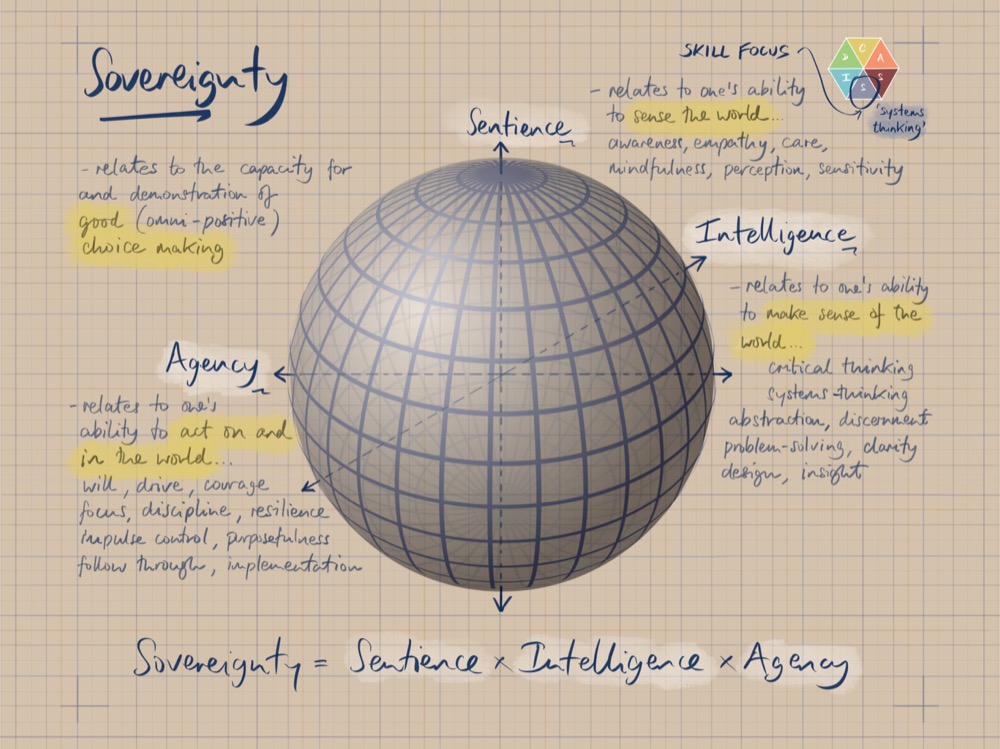 Sovereignty
- relates to the capacity for
and demonstration of
good (omni-positive)
choice making
SKILL FOCUS
D
C
A
I
S
S
'systems
thinking'
Sentience
- relates to one's ability
to sense the world...
awareness, empathy, care,
mindfulness, perception, sensitivity
Intelligence
- relates to one's ability
to make sense of the
world...
critical thinking
systems-thinking
abstraction, discernment
problem-solving, clarity
design, insight
Agency
- relates to one's
ability to act on and
in the world...
will, drive, courage
focus, discipline, resilience
impulse control, purposefulness
follow through, implementation
Sovereignty = Sentience x Intelligence x Agency